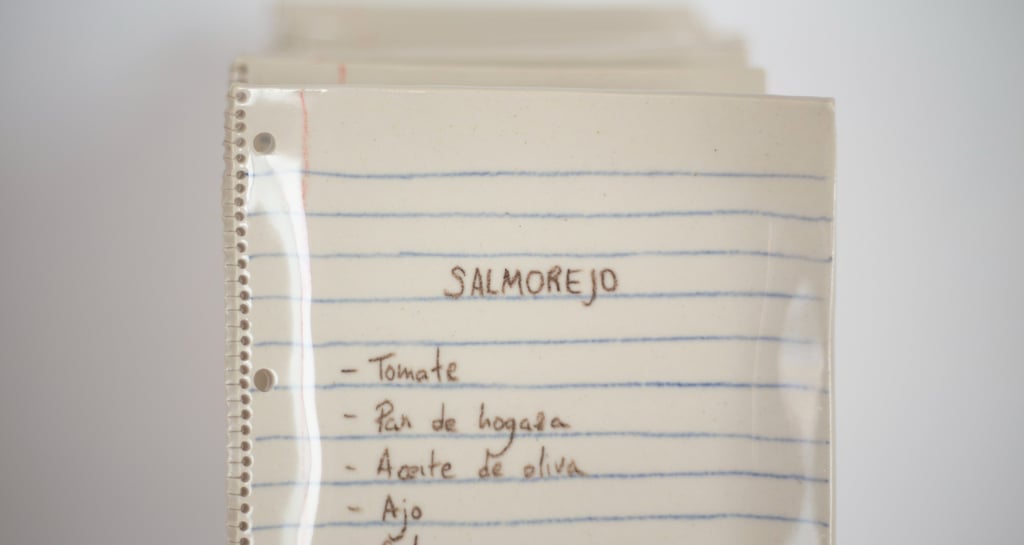 SALMOREJO
- Tomate
- Pan de hogaza
- Aceite de oliva
- Ajo